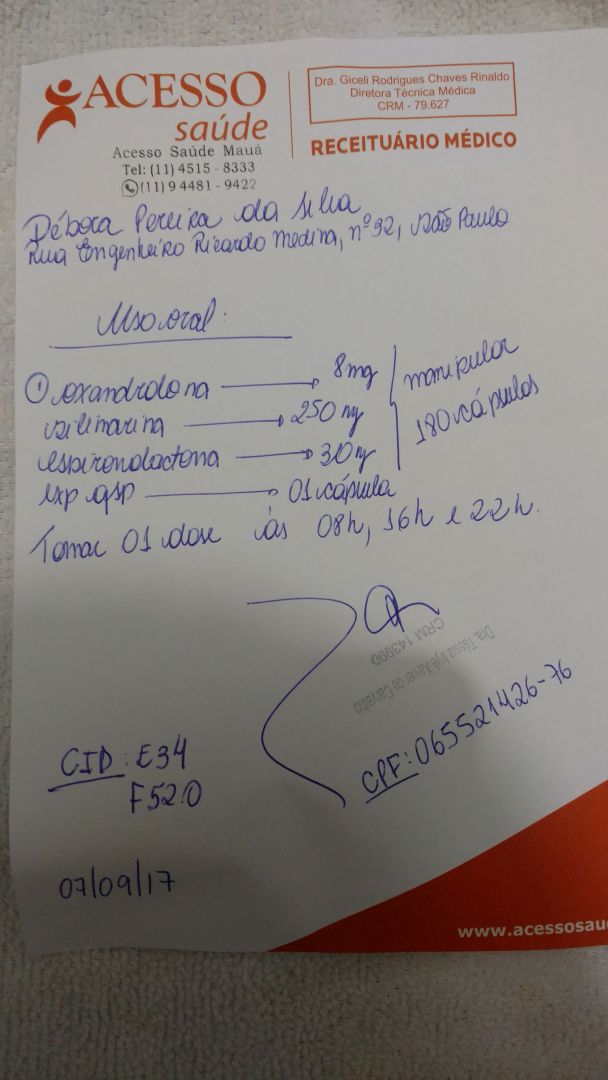 ACESSO
saúde
Acesso Saúde Mauá
Tel: (11) 4515 - 8333
(11) 9 4481 - 9422
Dra. Giceli Rodrigues Chaves Rinaldo
Diretora Técnica Médica
CRM - 79.627
RECEITUÁRIO MÉDICO
Débora Pereira da Silva
Rua Engenheiro Ricardo Medina, nº 92, São Paulo
Uso oral:
① oxandrolona 8mg
silimarina 250mg
espironolactona 30mg
exp qsp 01 cápsula
manipular
180 cápsulas
Tomar 01 dose às 08h, 16h e 22h.
CRM 143990
Xavier de Carvalho
CPF: 065521426-76
CID: E34
F52.0
07/09/17
www.acessosau